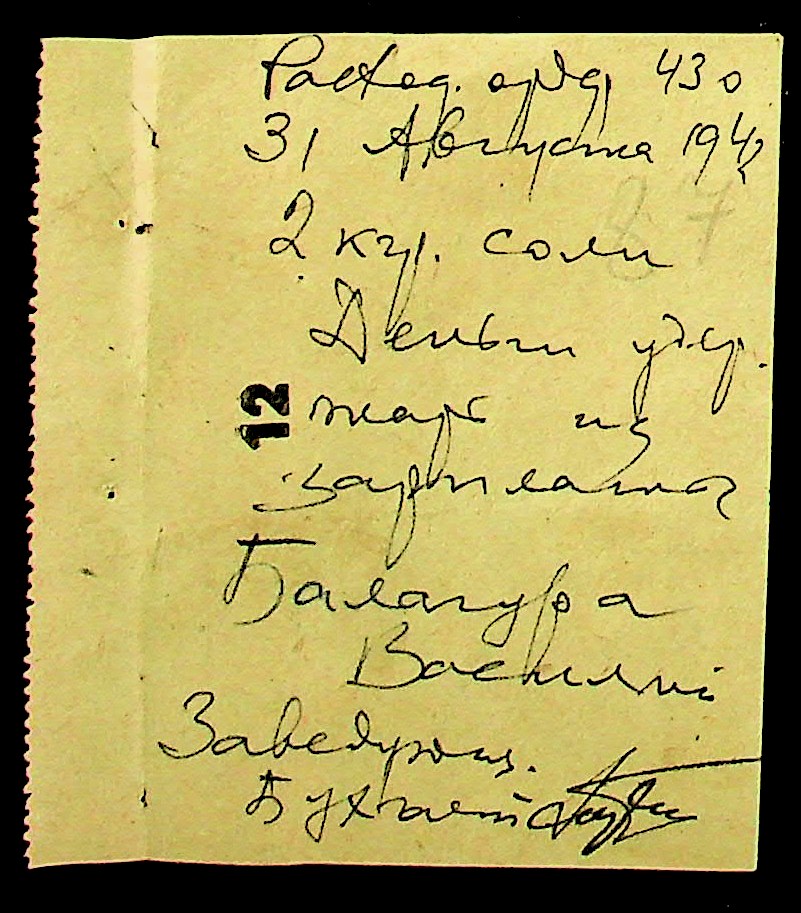 Расход. орд. 430
31 Августа 1942
87
2 кгр. соли
Деньги удер.
12
жать из
зарплаты
Балагура
Василий
Заведующ.
Бухгалтер